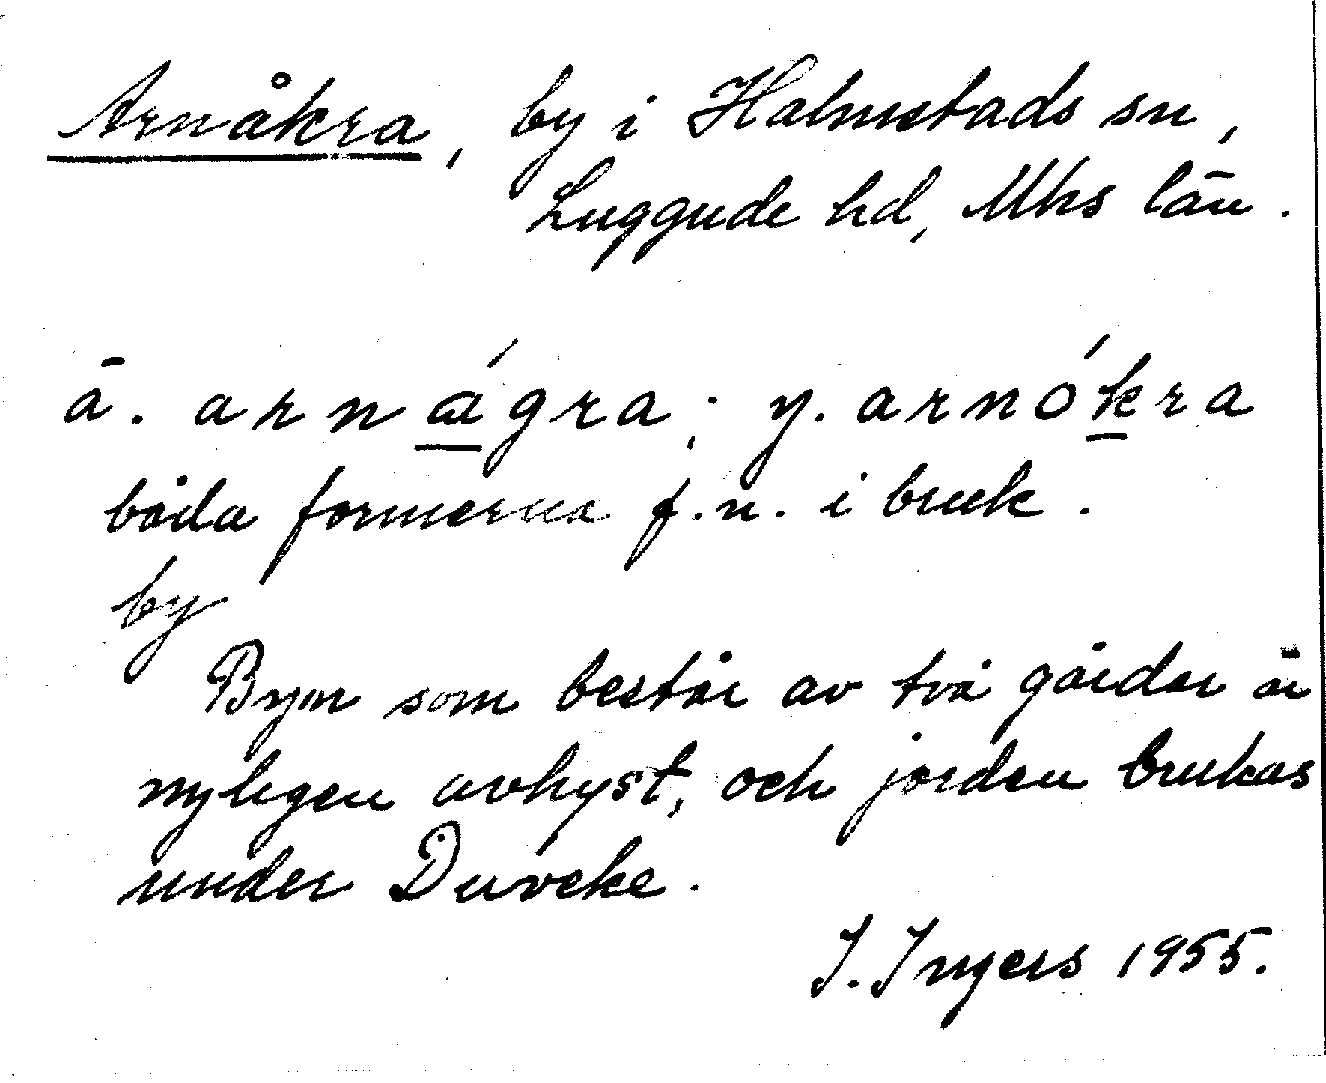 Arnåkra, by i Halmstads sn,
Luggude hd, Mhs län.
ä. arnágra; y. arnókra
båda formerna f.n. i bruk.
by
Byn som består av två gårdar är
nyligen avhyst, och jorden brukas
under Duveke.
I. Ingers 1955.